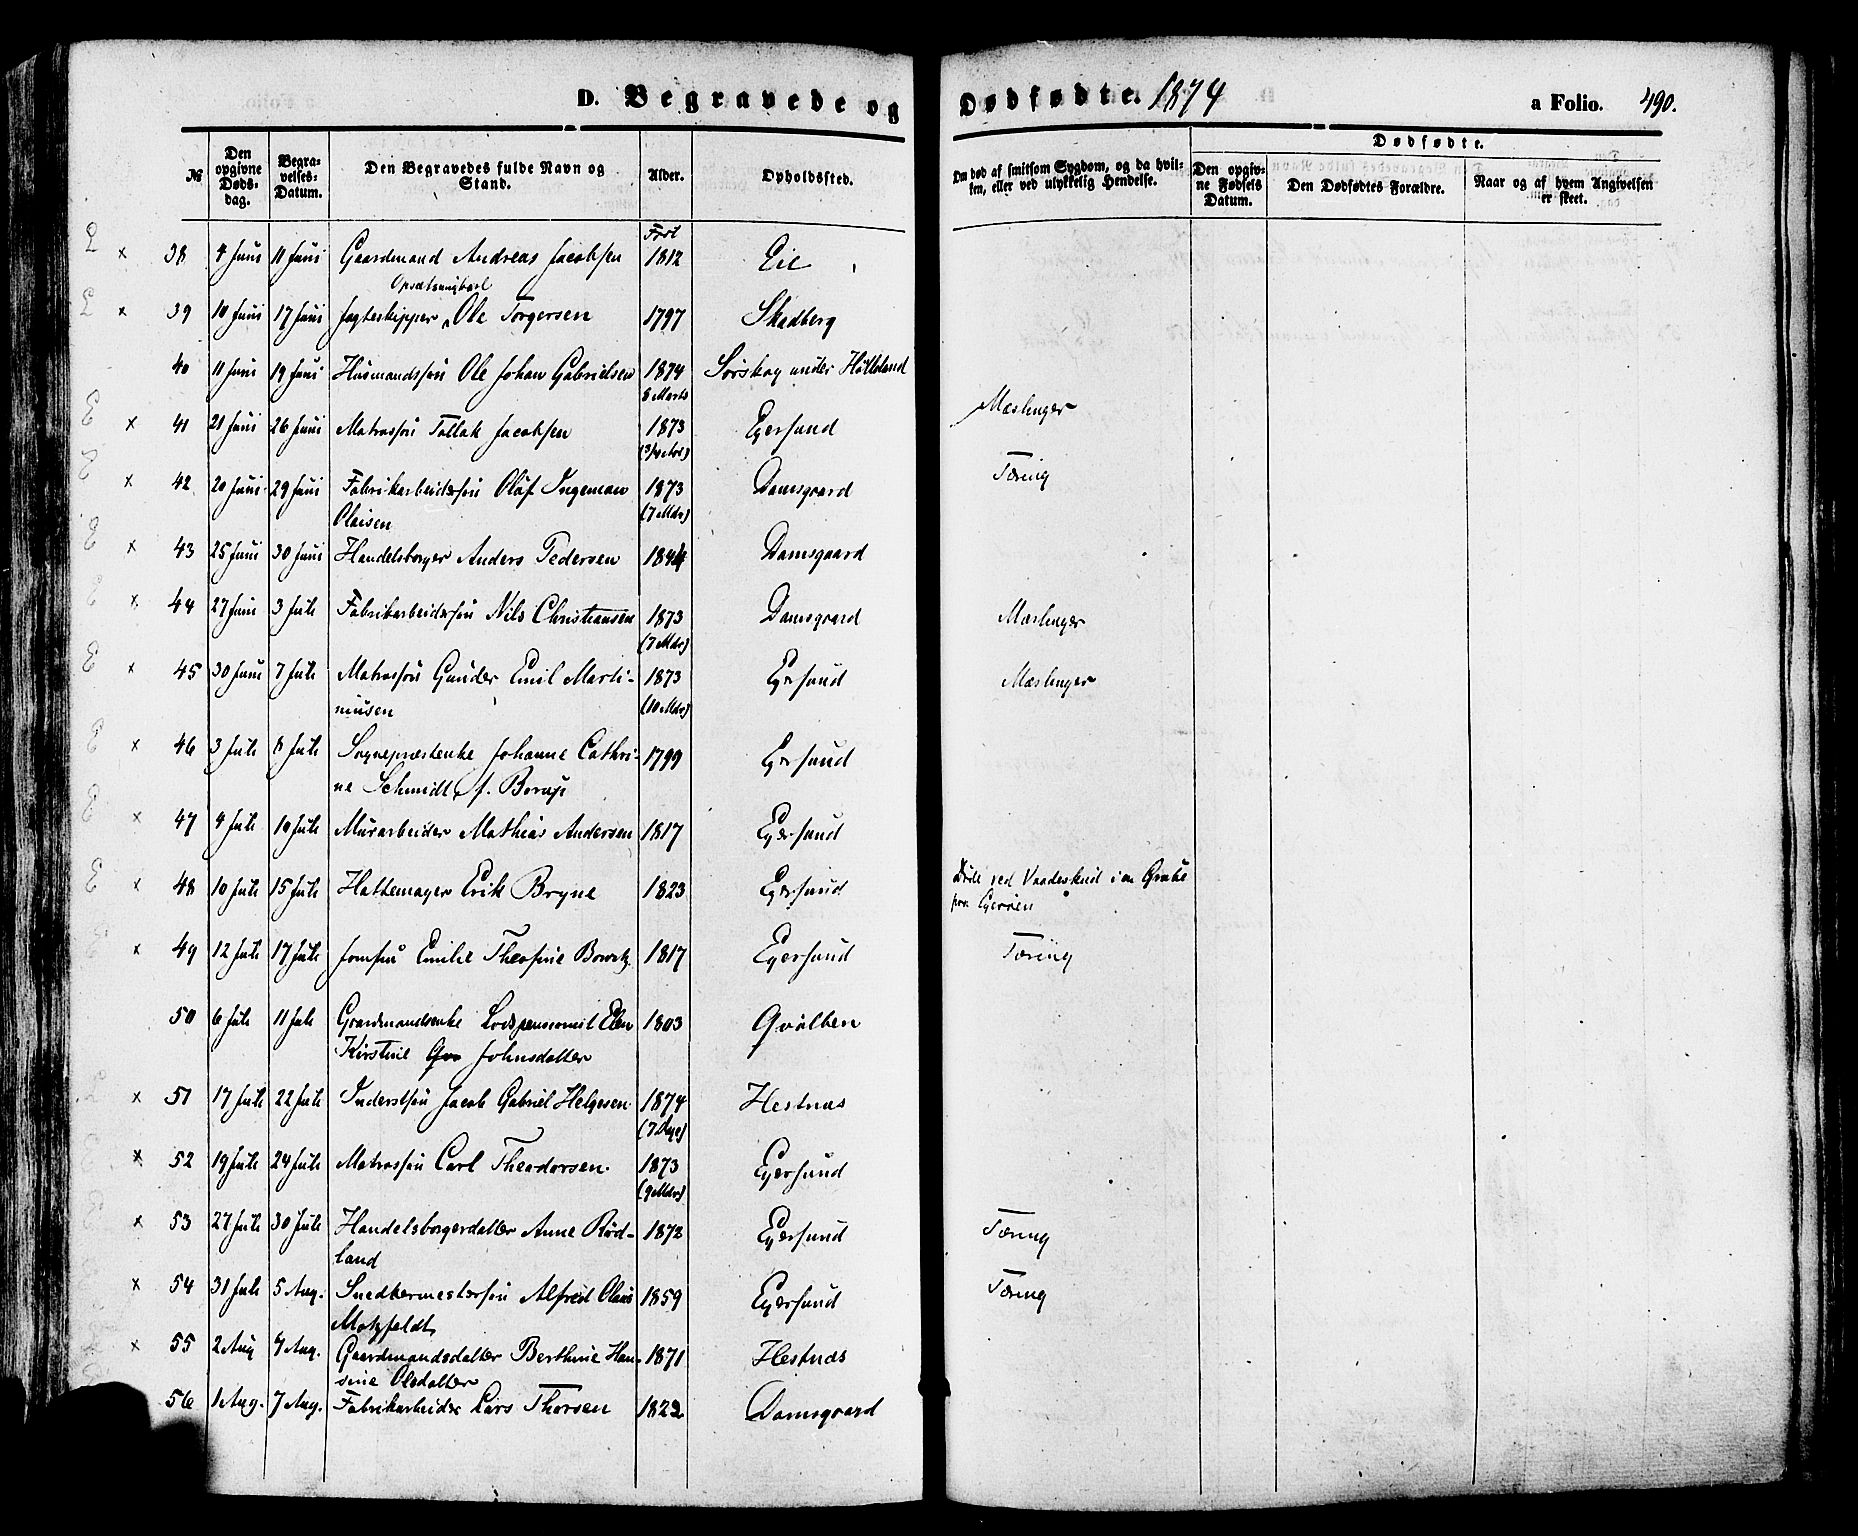 D. Begravede og Dødfødte. 1874 a Folio. 490.
№ Den opgivne Døds-dag. Begra-velses-Datum. Den Begravedes fulde Navn og Stand. Alder. Opholdssted. Om død af smitsom Sygdom, og da hvil-ken, eller ved ulykkelig Hendelse. Dødfødte.
Den opgiv-ne Fødsels Datum. Den Dødfødtes Forældre. Naar og af hvem Angivelsen er skeet.
Født
38 4 Juni 11 Juni Gaardmand Andreas Jacobsen 1812 Eie
39 10 Juni 17 Juni Jagteskipper Ole Torgersen 1797 Skadberg
40 11 Juni 19 Juni Husmandssøn Ole Johan Gabrielsen 1874 Sørskog under Hølleland
8 Marts
41 21 Juni 26 Juni Matrossøn Tollak Jacobsen 1873 Egersund Mæslinger
(3/4 Aar)
42 20 Juni 29 Juni Fabrikarbeidersøn Olaf Ingeman 1873 Damsgaard Tæring
Olaisen (7 Mdr)
43 25 Juni 30 Juni Handelsborger Anders Pedersen 1844 Damsgaard
44 27 Juni 3 Juli Fabrikarbeidersøn Nils Christiansen 1873 Damsgaard Mæslinger
(7 Mdr)
45 30 Juni 7 Juli Matrossøn Gunder Emil Marti- 1873 Egersund Mæslinger
niusen (10 Mdr)
46 3 Juli 8 Juli Sognepræstenke Johanne Cathri- 1799 Egersund
ne Schmidt, f. Borup
47 4 Juli 10 Juli Murarbeider Mathias Andersen 1817 Egersund
48 10 Juli 15 Juli Hattemager Erik Bryne 1823 Egersund Døde ved Vaadeskud i en Grube
paa Egerøen
49 12 Juli 17 Juli Jomfru Emilie Theosine 1817 Egersund Tæring
50 6 Juli 11 Juli Gaardmandsenke Lodspensionist Elen 1803 Qvalben
Kirstine Johnsdatter
51 17 Juli 22 Juli Inderstsøn Jacob Gabriel Helgesen 1874 Hestnæs
(7 Dage)
52 19 Juli 24 Juli Matrossøn Carl Theodorsen. 1873 Egersund
(9 Mdr)
53 27 Juli 30 Juli Handelsborgerdatter Anne Rød- 1872 Egersund Tæring
land
54 31 Juli 5 Aug. Snedkermestersøn Alfred Olaus 1859 Egersund Tæring
Motzfeldt
55 2 Aug 4 Aug. Gaardmandsdatter Berthine Han- 1871 Hestnæs
sine Olsdatter
56 1 Aug. 7 Aug. Fabrikarbeider Lars Thorsen 1822 Damsgaard